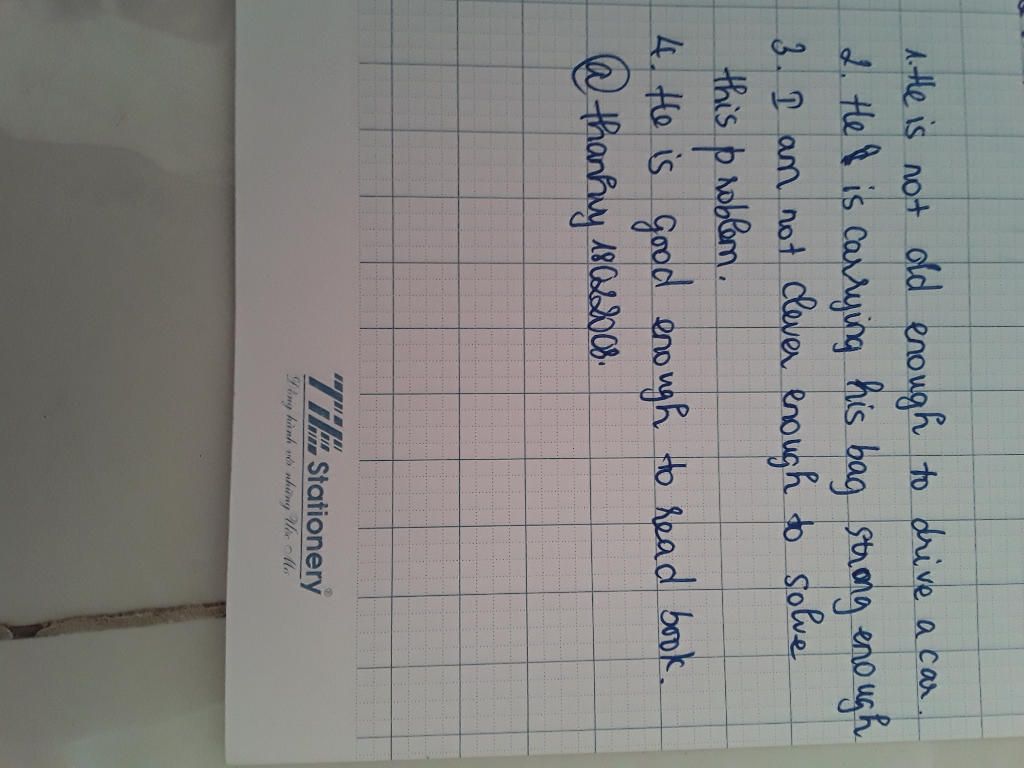 1. He is not old enough to drive a car.
2. He is carrying his bag strong enough
3. I am not clever enough to solve
this problem.
4. He is good enough to read book.
@ thanhuy 18022008.
TiTi Stationery®
Đồng hành với những Ước Mơ